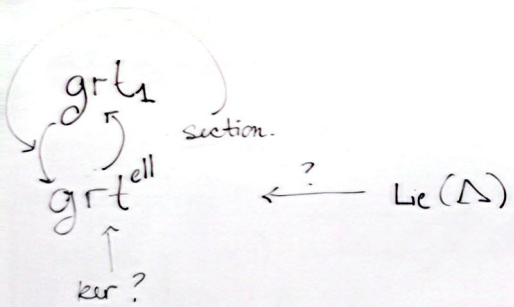 grt₁
section.
grtᵉˡˡ
?
Lie(Δ)
ker ?